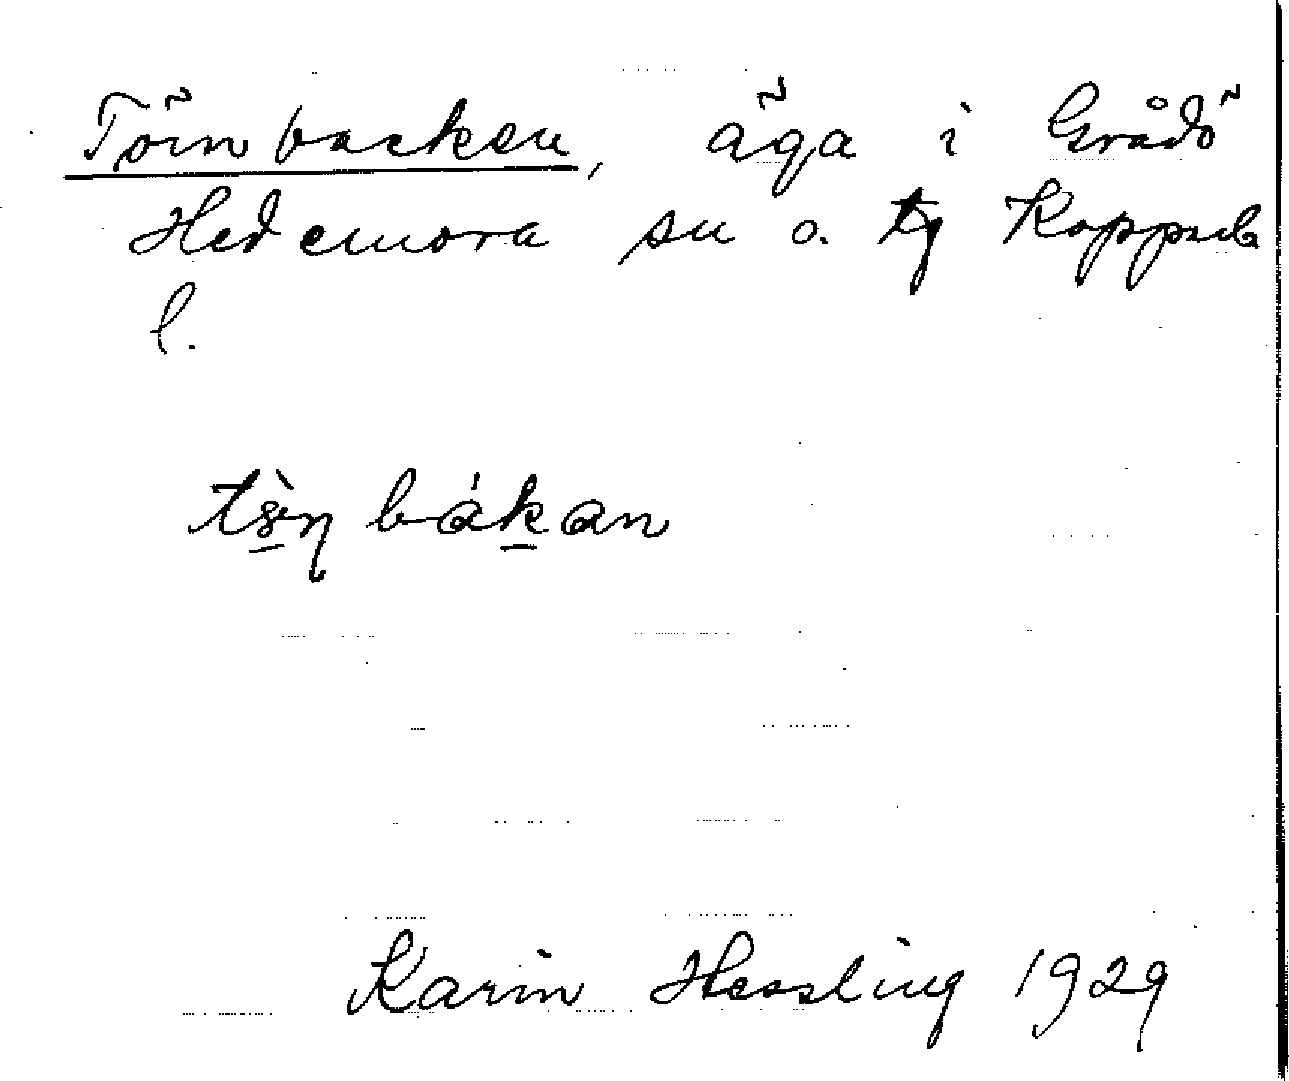 Törnbacken, äga i Grådö
Hedemora sn o. tg Kopparb
l.
bákan
Karin Hessling 1929